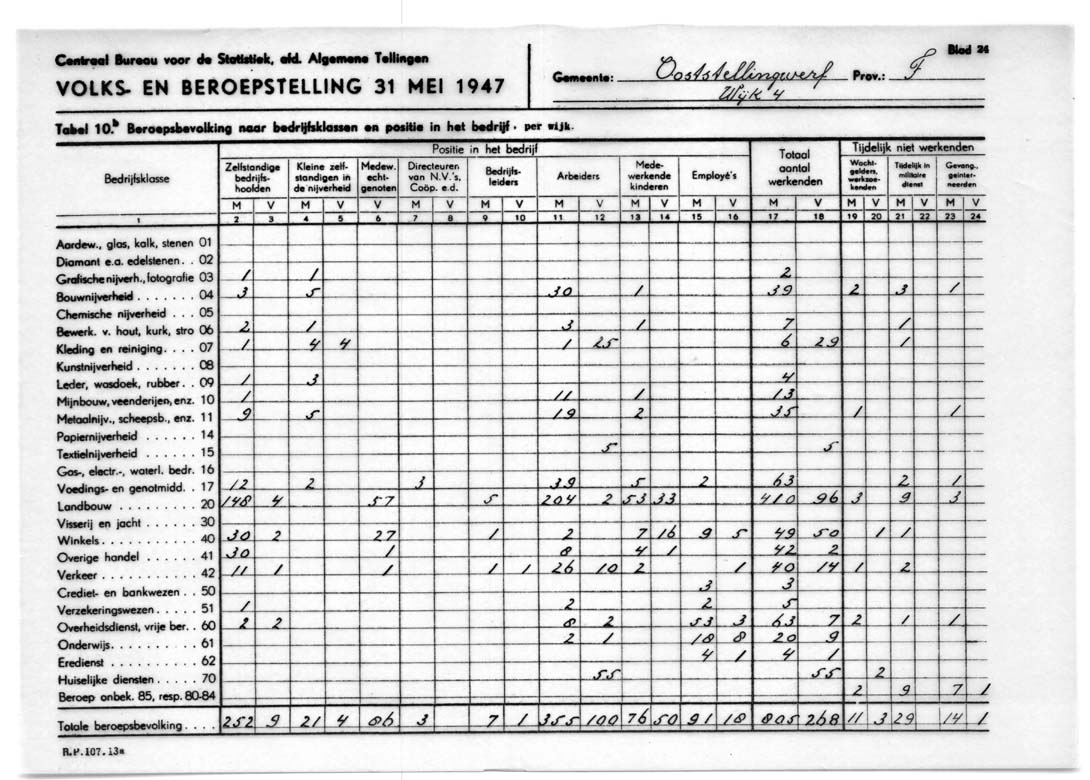 Blad 24
Centraal Bureau voor de Statistiek, afd. Algemene Tellingen
VOLKS- EN BEROEPSTELLING 31 MEI 1947
Gemeente: Ooststellingwerf Prov.: F
Wijk 4
Tabel 10.b Beroepsbevolking naar bedrijfsklassen en positie in het bedrijf. per wijk.
Bedrijfsklasse Positie in het bedrijf Totaal aantal werkenden Tijdelijk niet werkenden
Zelfstandige bedrijfs-hoofden Kleine zelf-standigen in de nijverheid Medew. echt-genoten Directeuren van N.V.'s, Coöp. e.d. Bedrijfs-leiders Arbeiders Mede-werkende kinderen Employé's Wacht-gelders, werkzoe-kenden Tijdelijk in militaire dienst Gevang., geïnter-neerden
M V M V V M V M V M V M V M V M V M V M V M V
1 2 3 4 5 6 7 8 9 10 11 12 13 14 15 16 17 18 19 20 21 22 23 24
Aardew., glas, kalk, stenen 01
Diamant e.a. edelstenen . . 02
Grafische nijverh., fotografie 03 1 1 2
Bouwnijverheid . . . . . . . 04 3 5 30 1 39 2 3 1
Chemische nijverheid . . . 05
Bewerk. v. hout, kurk, stro 06 2 1 3 1 7 1
Kleding en reiniging. . . . 07 1 4 4 1 25 6 29 1
Kunstnijverheid . . . . . . 08
Leder, wasdoek, rubber. . 09 1 3 4
Mijnbouw, veenderijen, enz. 10 1 11 1 13
Metaalnijv., scheepsb., enz. 11 9 5 19 2 35 1 1
Papiernijverheid . . . . . . 14
Textielnijverheid . . . . . . 15 5 5
Gas-, electr.-, waterl. bedr. 16
Voedings- en genotmidd. . 17 12 2 3 39 5 2 63 2 1
Landbouw . . . . . . . . . 20 148 4 57 5 204 2 53 33 410 96 3 9 3
Visserij en jacht . . . . . . 30
Winkels. . . . . . . . . . . 40 30 2 27 1 2 7 16 9 5 49 50 1 1
Overige handel . . . . . . 41 30 1 8 4 1 42 2
Verkeer . . . . . . . . . . . 42 11 1 1 1 1 26 10 2 1 40 14 1 2
Crediet- en bankwezen . . 50 3 3
Verzekeringswezen . . . . . 51 1 2 2 5
Overheidsdienst, vrije ber. . 60 2 2 8 2 53 3 63 7 2 1 1
Onderwijs. . . . . . . . . . 61 2 1 18 8 20 9
Eredienst . . . . . . . . . . 62 4 1 4 1
Huiselijke diensten . . . . . 70 55 55 2
Beroep onbek. 85, resp. 80-84 2 9 7 1
Totale beroepsbevolking . . . . 252 9 21 4 86 3 7 1 355 100 76 50 91 18 805 268 11 3 29 14 1
R.P.107.13a